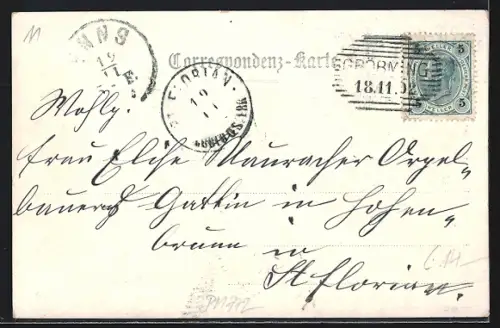 11
ENNS
19
11
Correspondenz-Karte
ST. FLORIAN
19
11
18.11.02
5 5
HELLER HELLER
Wohlg.
Frau Elche Mauracher Orgel-
bauers Gattin in Hohen-
brunn in
St Florian.